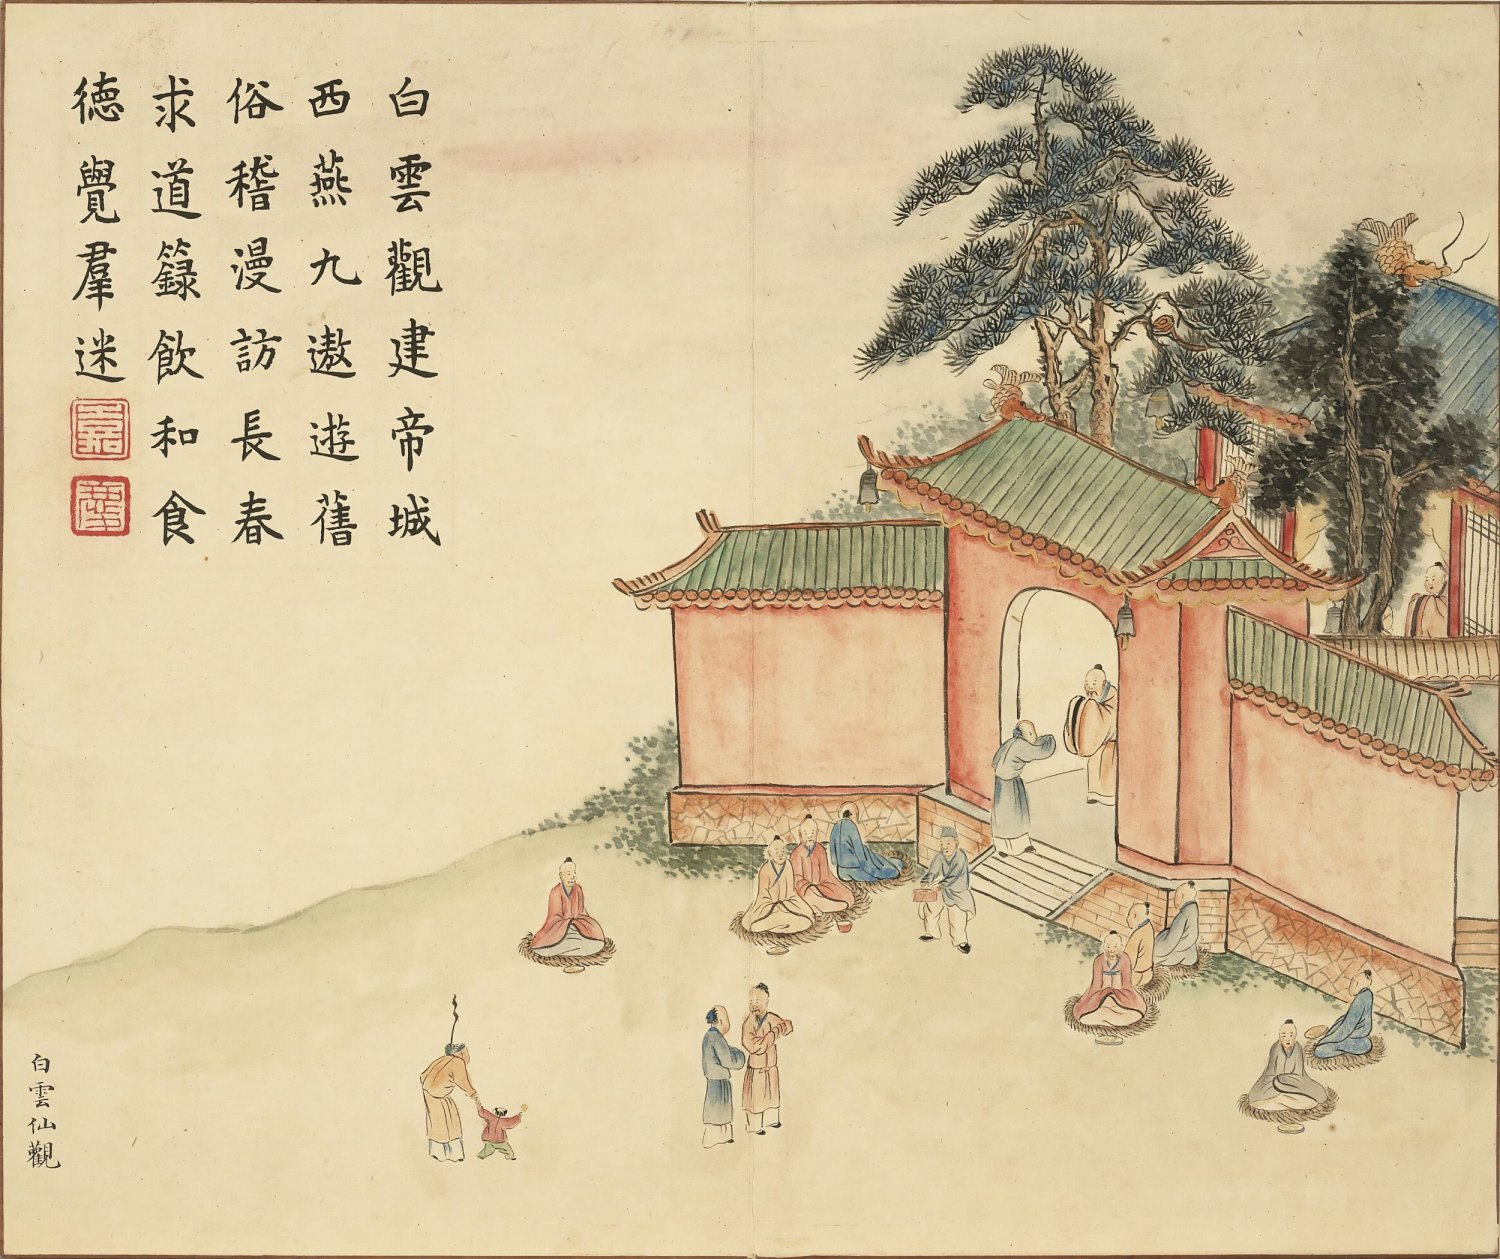 白雲觀建帝城
西燕九遨遊舊
俗稽漫訪長春
求道籙飲和食
德覺羣迷
白雲仙觀